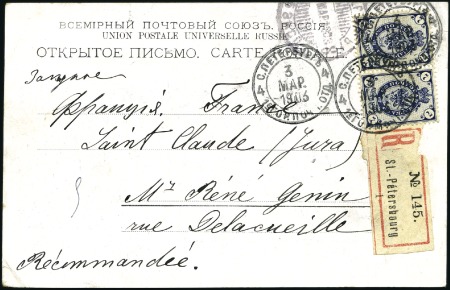 ВСЕМІРНЫЙ ПОЧТОВЫЙ СОЮЗЪ. РОССІЯ.
UNION POSTALE UNIVERSELLE RUSSIE
ОТКРЫТОЕ ПИСЬМО. CARTE
Заказное
Франція. France
Saint Claude (Jura)
Mr René Genin
rue Delacueille
Récommandée.
С.ПЕТЕРБУРГЪ
3
МАР.
1903
R
St.-Pétersbourg
№ 145.